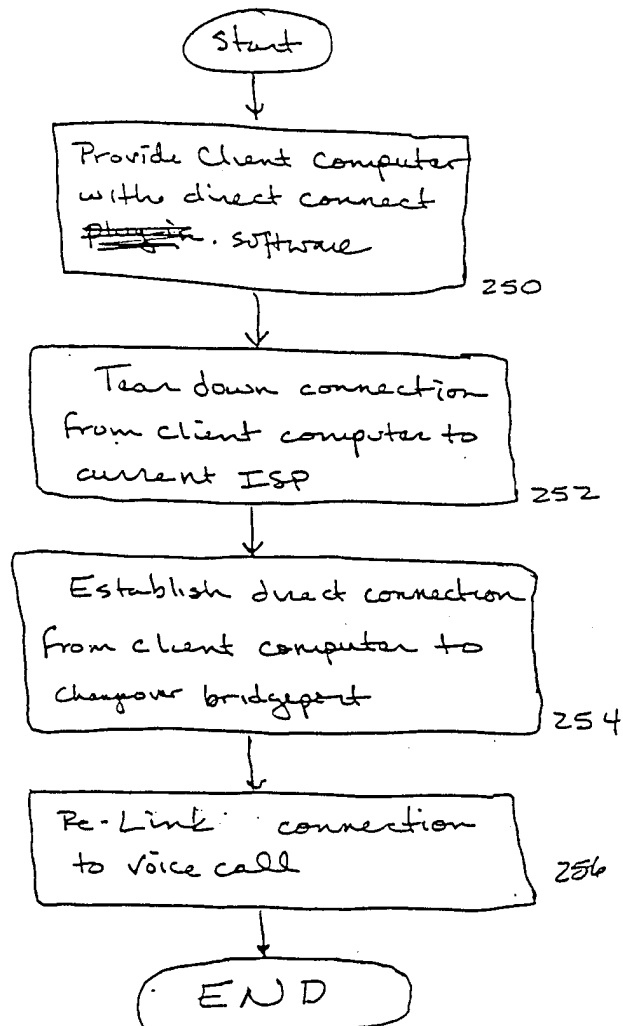 Start
Provide Client computer
with direct connect
plug-in. software
250
Tear down connection
from client computer to
current ISP
252
Establish direct connection
from client computer to
changeover bridgeport
254
Re-Link connection
to voice call
256
END